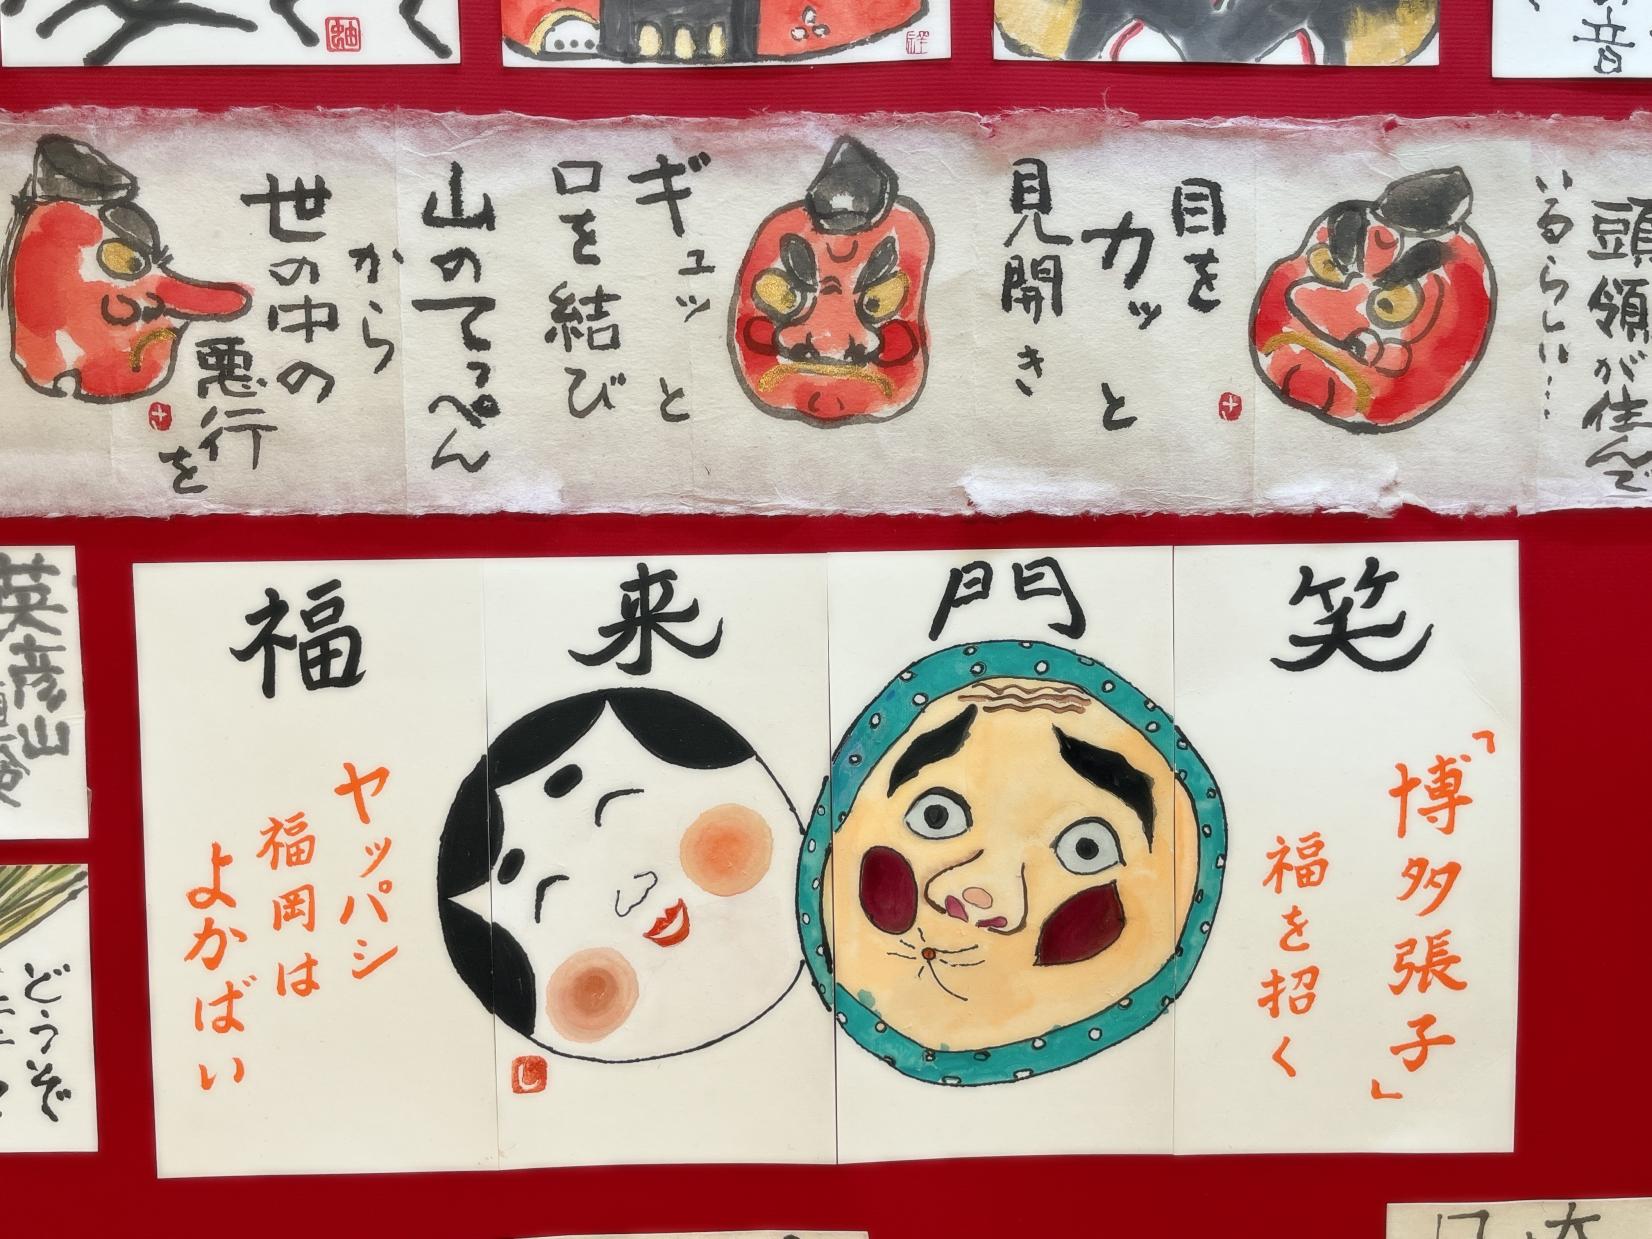 頭領が住んで
いるらしい…
目を
カッと
見開き
ギュッと
口を結び
山のてっぺん
から
世の中の
悪行
を
笑門来福
「博多張子」
福を招く
ヤッパシ
福岡は
よかばい
英彦山
どうぞ